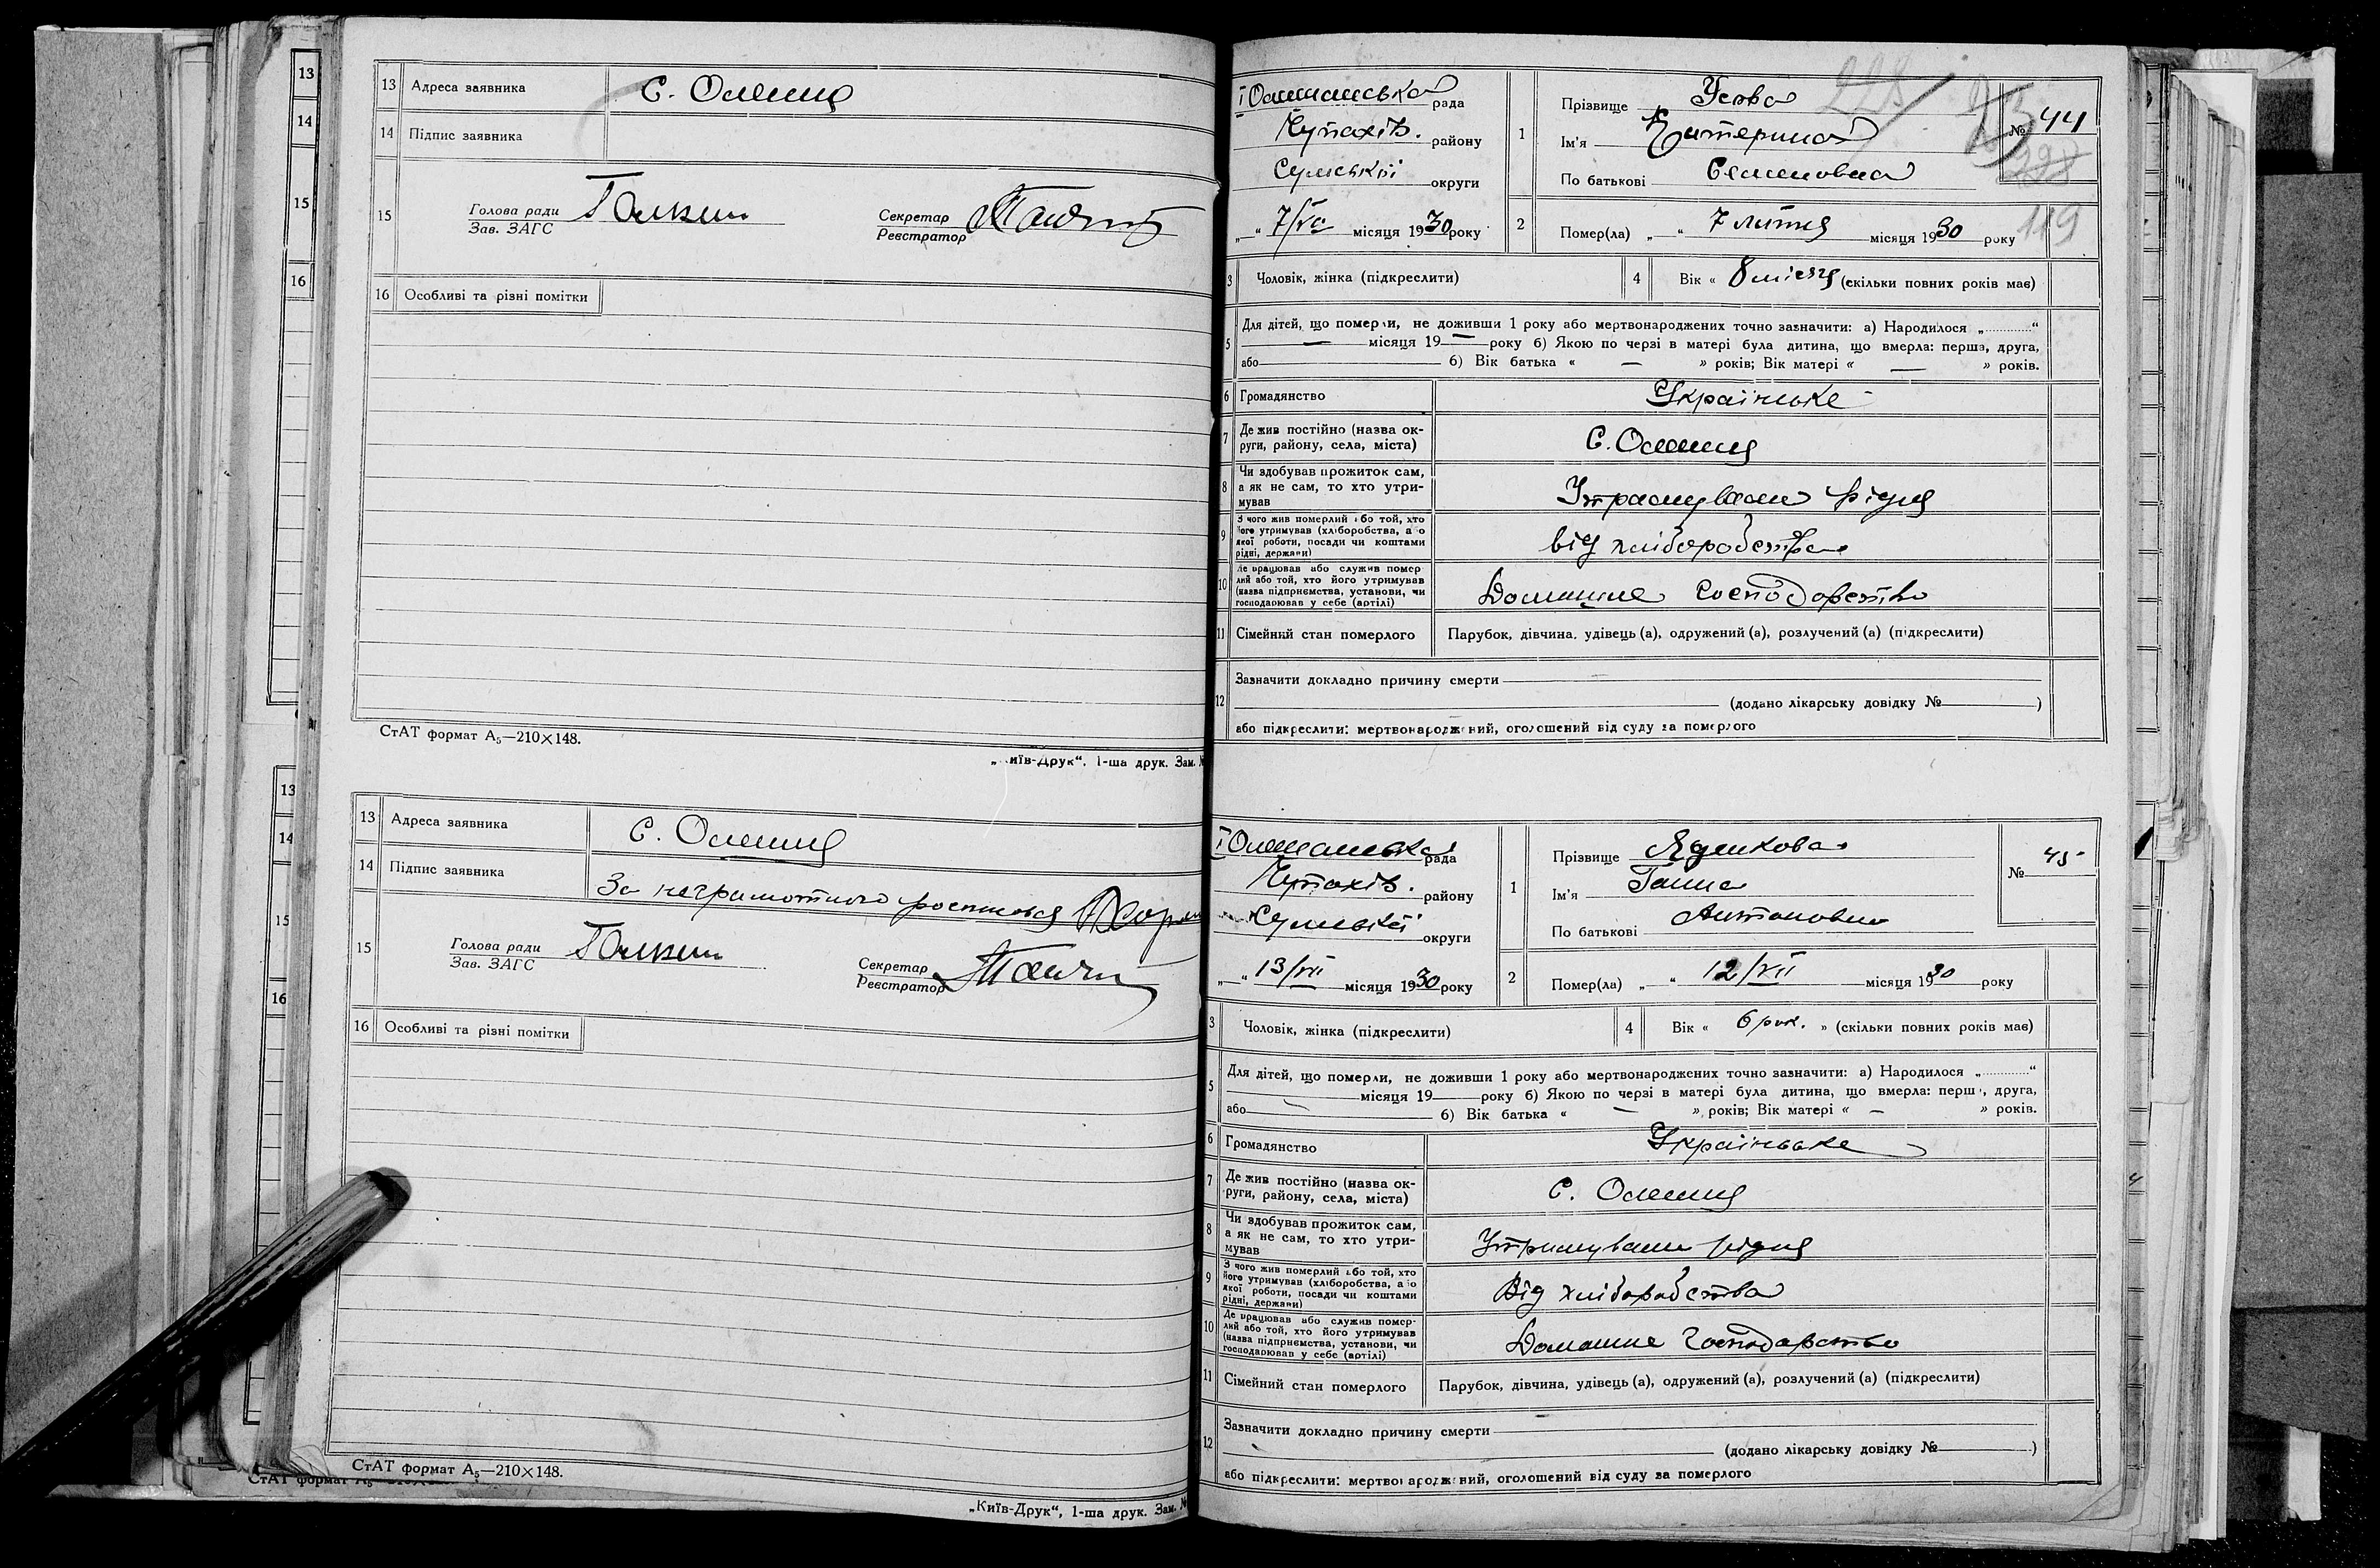 13 Адреса заявника С. Олешня
14 Підпис заявника
15 Голова ради Галкин Секретар
Зав. ЗАГС Реєстратор
16 Особливі та різні помітки
СтАТ формат А5—210×148.
„Київ-Друк“, 1-ша друк. Зам. №
13 Адреса заявника С. Олешня
14 Підпис заявника За неграмотного росписався
15 Голова ради Галкин Секретар
Зав. ЗАГС Реєстратор
16 Особливі та різні помітки
СтАТ формат А5—210×148.
„Київ-Друк“, 1-ша друк. Зам. №
рада
Чупахів. району
Сумській округи
„ “ 7/VII місяця 1930 року
1 Прізвище
Ім'я Катерина
По батькові Семеновна
№ 44
228
119
2 Помер(ла) „ “ 7 липня місяця 1930 року
3 Чоловік, жінка (підкреслити)
4 Вік « 8 місяця (скільки повних років має)
5 Для дітей, що померли, не доживши 1 року або мертвонароджених точно зазначити: а) Народилося „ “
— місяця 19— року б) Якою по черзі в матері була дитина, що вмерла: перша, друга,
або б) Вік батька « — » років; Вік матері « — » років.
6 Громадянство Українське
7 Де жив постійно (назва ок-
руги, району, села, міста) С. Олешня
8 Чи здобував прожиток сам,
а як не сам, то хто утри-
мував Утримували рідня
9 З чого жив померлий або той, хто
його утримував (хліборобства, або
якої роботи, посади чи коштами
рідні, держави) від хліборобства
10 Де працював або служив помер-
лий або той, хто його утримував
(назва підприємства, установи, чи
господарював у себе (артілі) Домашнє господарство
11 Сімейний стан померлого Парубок, дівчина, удівець (а), одружений (а), розлучений (а) (підкреслити)
12 Зазначити докладно причину смерти
(додано лікарську довідку № )
або підкреслити: мертвонароджений, оголошений від суду за померлого
рада
Чупахів. району
Сумській округи
„ “ 13/VII місяця 1930 року
1 Прізвище Ядикова
Ім'я Ганна
По батькові Антоновна
№ 45
2 Помер(ла) „ “ 12/VII місяця 1930 року
3 Чоловік, жінка (підкреслити)
4 Вік « 6 рок. » (скільки повних років має)
5 Для дітей, що померли, не доживши 1 року або мертвонароджених точно зазначити: а) Народилося „ “
місяця 19 року б) Якою по черзі в матері була дитина, що вмерла: перша, друга,
або б) Вік батька « — » років; Вік матері « — » років.
6 Громадянство Українське
7 Де жив постійно (назва ок-
руги, району, села, міста) С. Олешня
8 Чи здобував прожиток сам,
а як не сам, то хто утри-
мував Утримували рідня
9 З чого жив померлий або той, хто
його утримував (хліборобства, або
якої роботи, посади чи коштами
рідні, держави) Від хліборобства
10 Де працював або служив помер-
лий або той, хто його утримував
(назва підприємства, установи, чи
господарював у себе (артілі) Домашнє господарство
11 Сімейний стан померлого Парубок, дівчина, удівець (а), одружений (а), розлучений (а) (підкреслити)
12 Зазначити докладно причину смерти
(додано лікарську довідку № )
або підкреслити: мертвонароджений, оголошений від суду за померлого